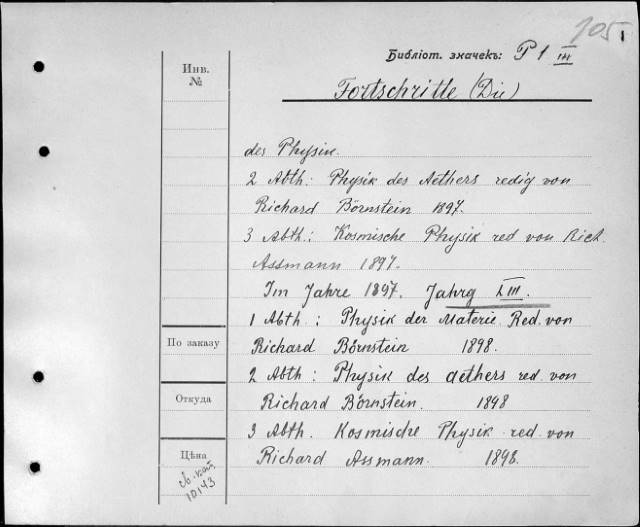 105 1
Библіот. значекъ: P 1 III
Инв.
№
Fortschritte (Die)
des Physik.
2 Abth: Physik des Aethers redig von
Richard Börnstein 1897.
3 Abth.: Kosmische Physik red von Rich.
Assmann 1897.
Im Jahre 1897. Jahrg LIII.
1 Abth: Physik der Materie Red. von
По заказу
Richard Börnstein 1898.
2 Abth: Physik des aethers red. von
Откуда
Richard Börnstein. 1898
3 Abth. Kosmische Physik red. von
Цѣна
Richard Assmann. 1898.
св. кат.
10143